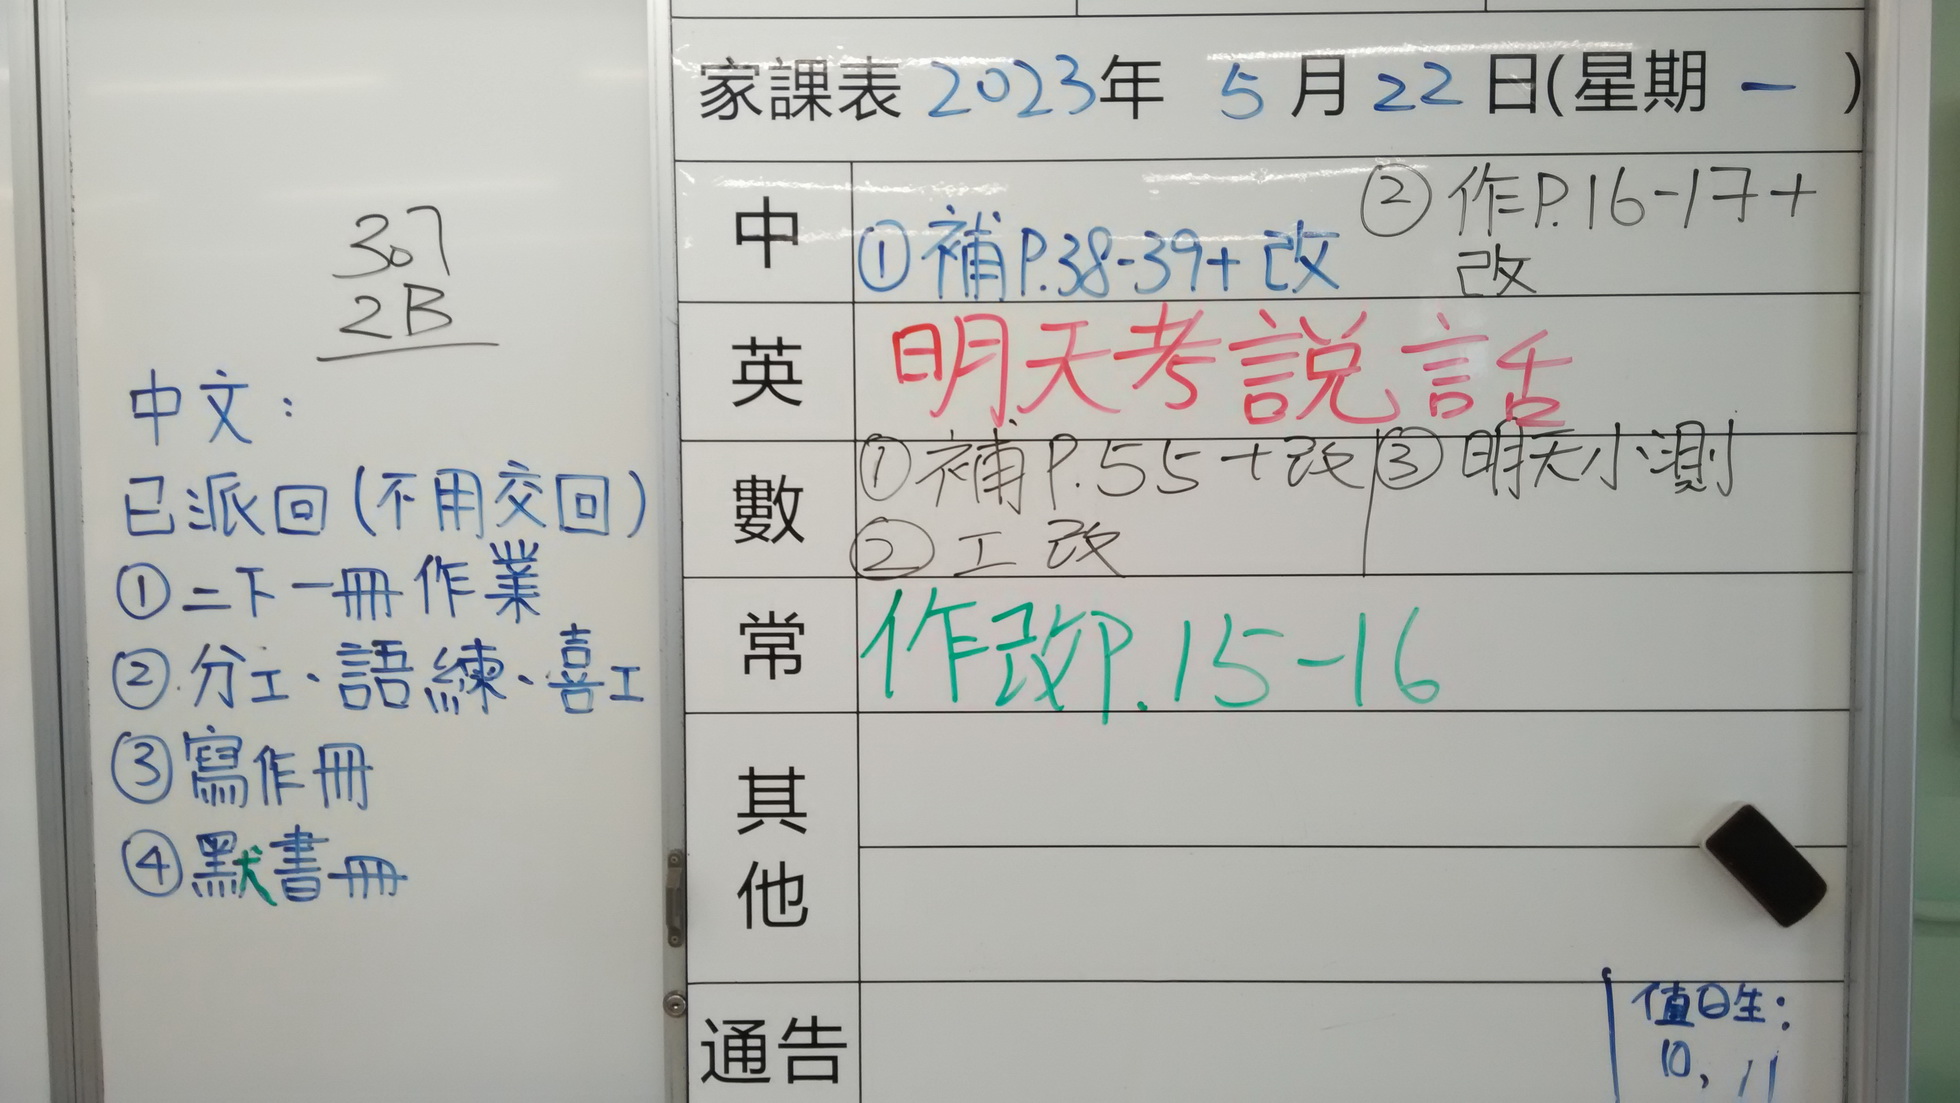 307
2B
中文：
已派回(不用交回)
①二下一冊作業
②分工、語練、喜工
③寫作冊
④默書冊
家課表 2023年 5月22日(星期一)
中 ①補P.38-39+改 ②作P.16-17+
改
英 明天考説話
數 ①補P.55+改 ③明天小測
②工改
常 作改P.15-16
其他
通告
值日生：
10, 11